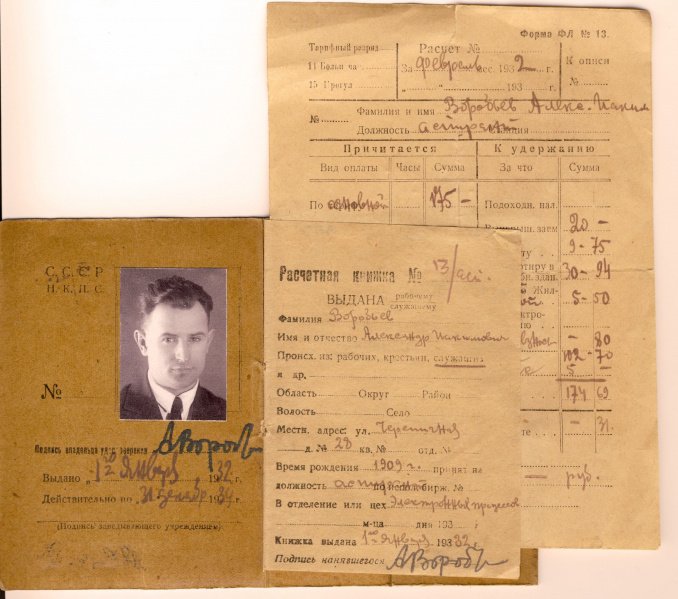 Форма ФЛ № 13.
Тарифный разряд
Расчет №
К описи
14 Больн ча
За февраль мес. 1932 г.
№
15 Прогул
" " 193 г.
Фамилия и имя Воробьев Алекс. Иаким
№
Должность аспирант
Причитается
К удержанию
Вид оплаты Часы Сумма
За что Сумма
По основной 175 –
Подоходн. нал.
заем 20 –
9 – 75
30 – 24
5 – 50
– 80
102 – 70
5 –
174 69
– 31
– руб.
С.С.С.Р
Н.К.П.С.
№
Подпись владельца
АВороб
Выдано „1го Января 1932 г.
Действительно по 31 декабр 1934 г.
(Подпись заведывающего учреждением)
Расчетная книжка № 13/асп.
ВЫДАНА рабочему служащему
Фамилия Воробьев
Имя и отчество Александр Иакимович
Происх. из: рабочих, крестьян, служащих
и др.
Область Округ Район
Волость Село
Местн. адрес: ул. Черепичная
д. № 28 кв. № отд. №
Время рождения 1909 г. принят на
должность аспирант по
бирж. №
В отделение или цех Электронных процессов
м-ца дня 193 г
Книжка выдана 1го января 1932 г.
Подпись нанявшегося АВороб